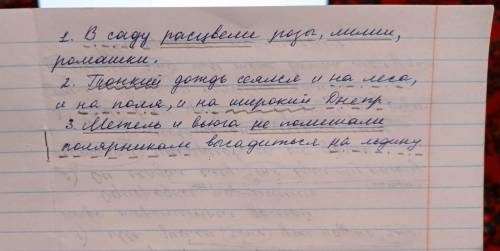 1. В саду расцвели розы, лилии,
ромашки.
2. Тонкий дождь сеялся и на леса,
и на поля, и на широкий Днепр
3. Метель и вьюга не помешали
полярникам высадиться на льдину